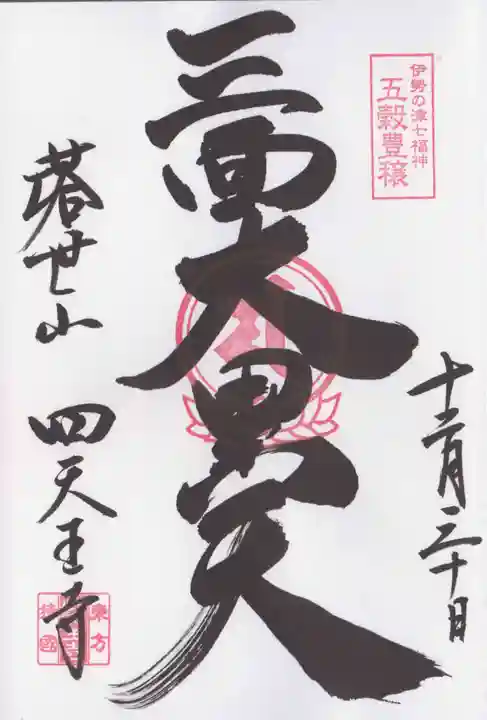 伊勢の津七福神
五穀豊穣
十二月三十日
三面大黒天
塔世山
四天王寺
東方
持國